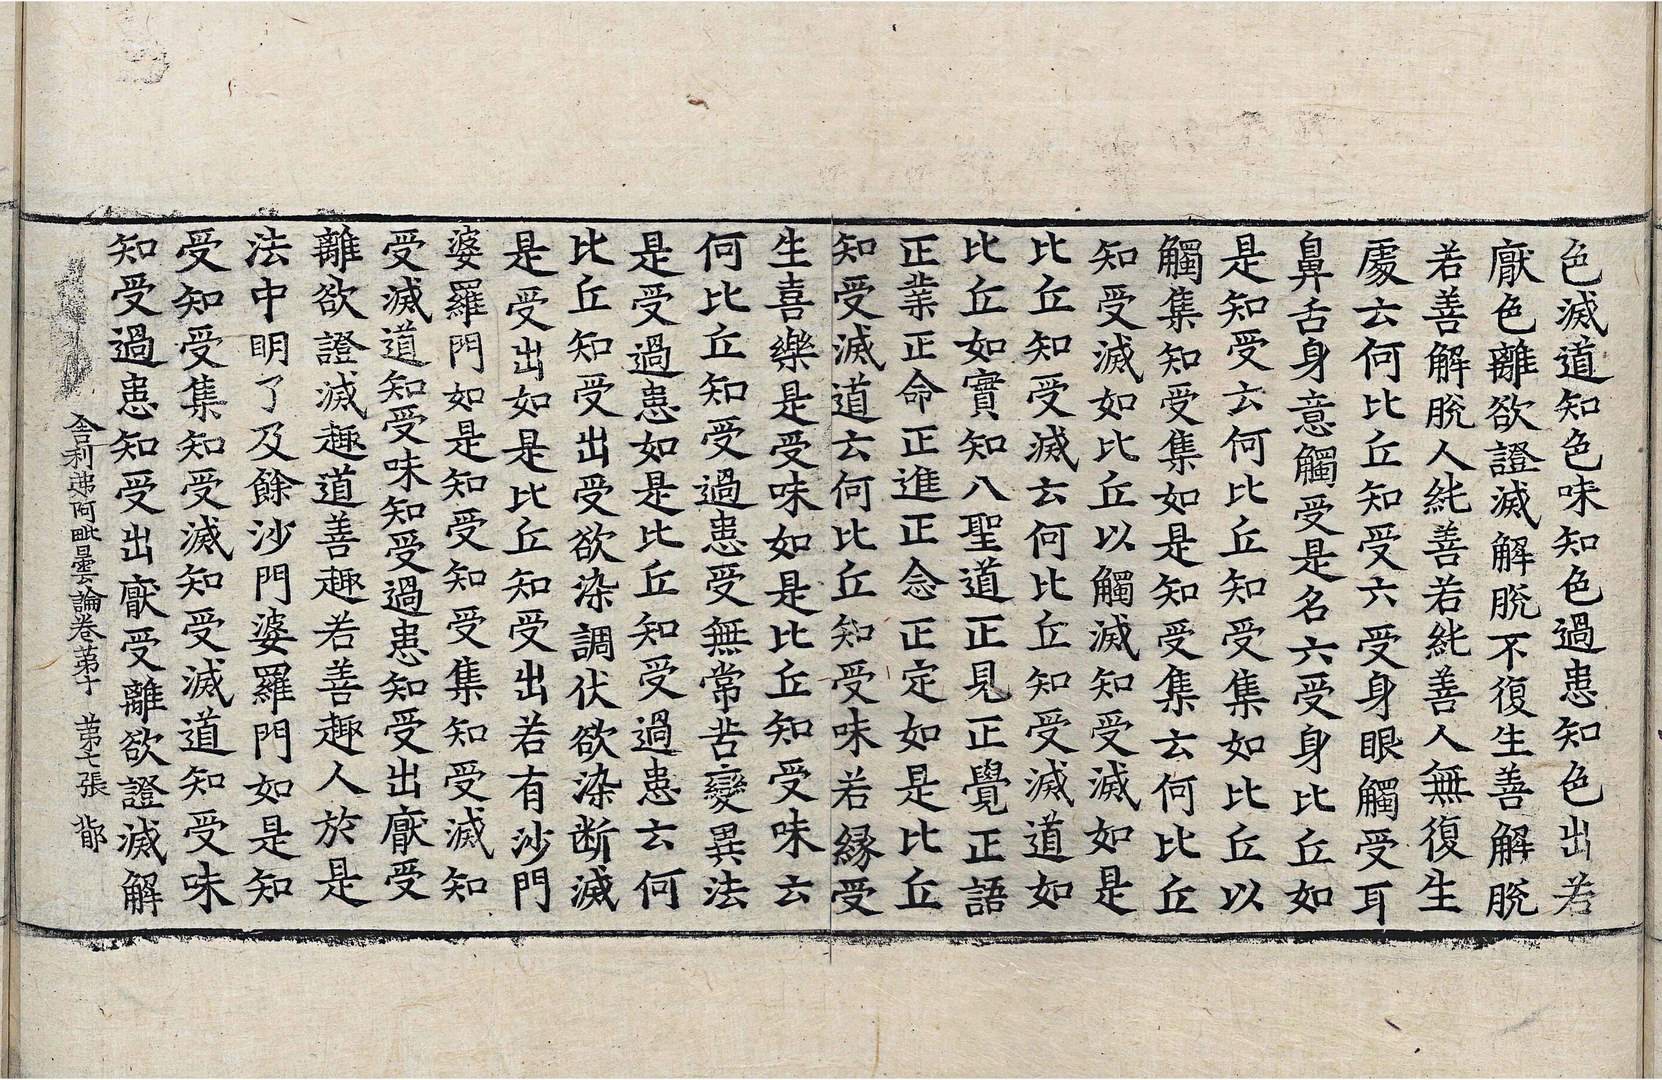 色滅道知色味知色過患知色出若
厭色離欲證滅解脫不復生善解脫
若善解脫人純善若純善人無復生
處云何比丘知受六受身眼觸受耳
鼻舌身意觸受是名六受身比丘如
是知受云何比丘知受集如比丘以
觸集知受集如是知受集云何比丘
知受滅如比丘以觸滅知受滅如是
比丘知受滅云何比丘知受滅道如
比丘如實知八聖道正見正覺正語
正業正命正進正念正定如是比丘
知受滅道云何比丘知受味若緣受
生喜樂是受味如是比丘知受味云
何比丘知受過患受無常苦變異法
是受過患如是比丘知受過患云何
比丘知受出受欲染調伏欲染断滅
是受出如是比丘知受出若有沙門
婆羅門如是知受知受集知受滅知
受滅道知受味知受過患知受出厭受
離欲證滅趣道善趣若善趣人於是
法中明了及餘沙門婆羅門如是知
受知受集知受滅知受滅道知受味
知受過患知受出厭受離欲證滅解
舍利弗阿毗曇論卷第十 第七張